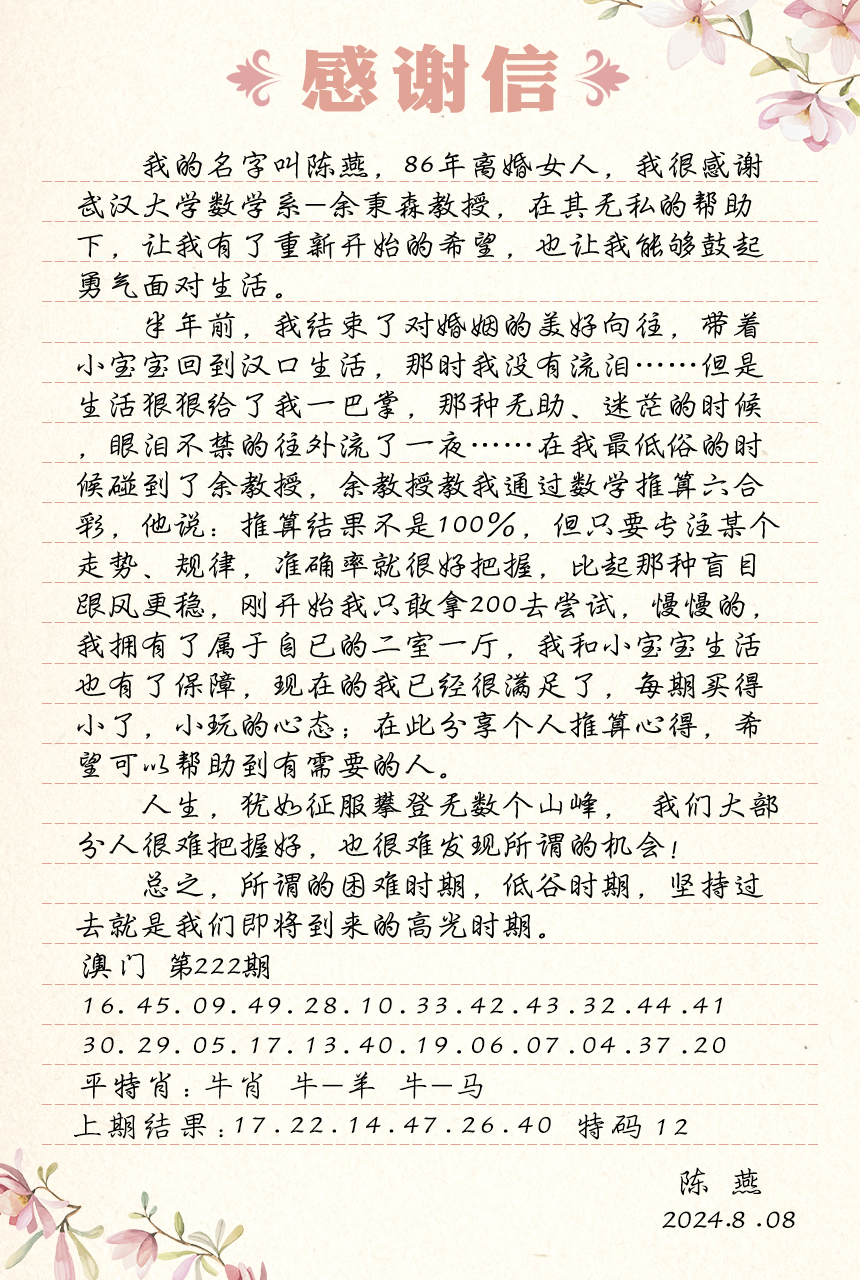 感谢信
我的名字叫陈燕，86年离婚女人，我很感谢
武汉大学数学系—余秉森教授，在其无私的帮助
下，让我有了重新开始的希望，也让我能够鼓起
勇气面对生活。
半年前，我结束了对婚姻的美好向往，带着
小宝宝回到汉口生活，那时我没有流泪……但是
生活狠狠给了我一巴掌，那种无助、迷茫的时候
，眼泪不禁的往外流了一夜……在我最低俗的时
候碰到了余教授，余教授教我通过数学推算六合
彩，他说：推算结果不是100%，但只要专注某个
走势、规律，准确率就很好把握，比起那种盲目
跟风更稳，刚开始我只敢拿200去尝试，慢慢的，
我拥有了属于自已的二室一厅，我和小宝宝生活
也有了保障，现在的我已经很满足了，每期买得
小了，小玩的心态；在此分享个人推算心得，希
望可以帮助到有需要的人。
人生，犹如征服攀登无数个山峰， 我们大部
分人很难把握好，也很难发现所谓的机会！
总之，所谓的困难时期，低谷时期，坚持过
去就是我们即将到来的高光时期。
澳门 第222期
16.45.09.49.28.10.33.42.43.32.44.41
30.29.05.17.13.40.19.06.07.04.37.20
平特肖：牛肖 牛—羊 牛—马
上期结果：17.22.14.47.26.40 特码 12
陈 燕
2024.8.08